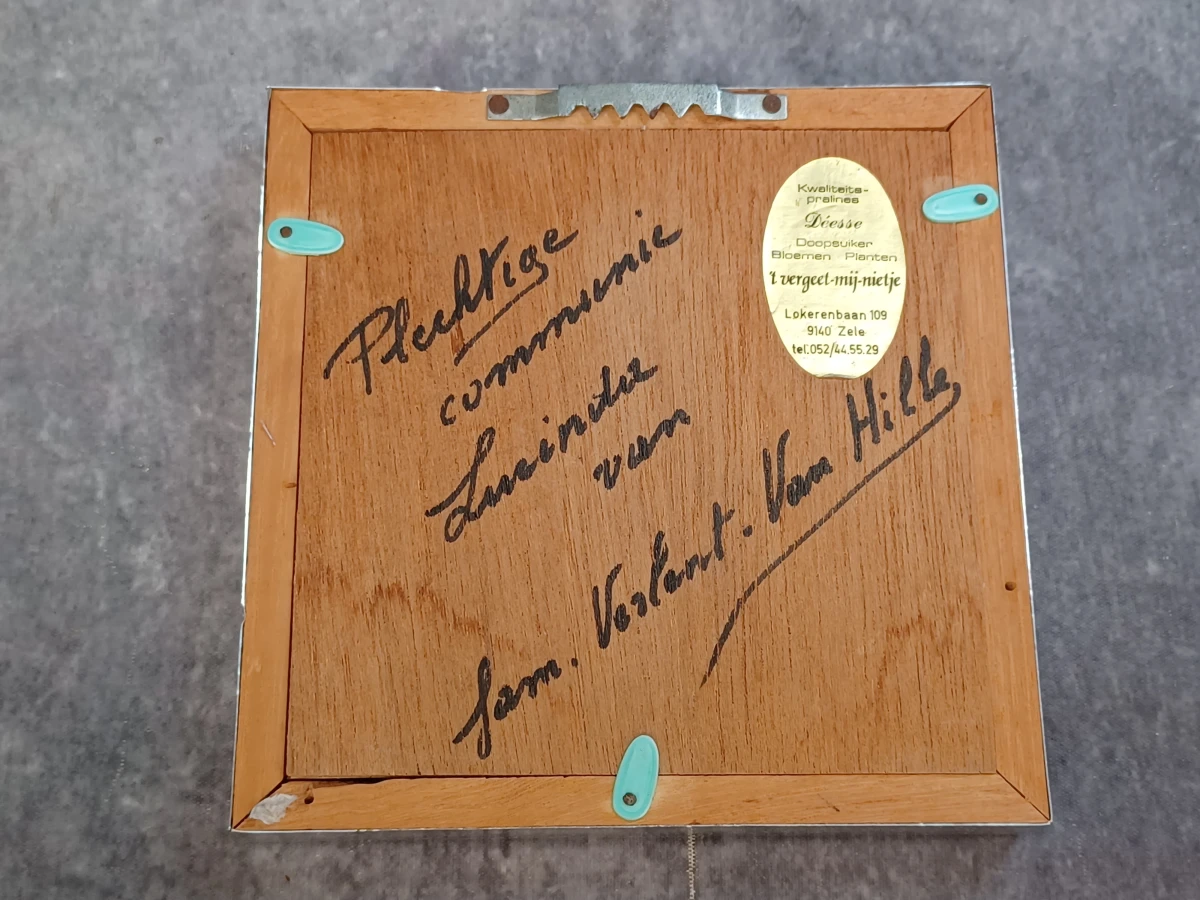 Plechtige
communie
Lucinda
van
fam. Verlent - Van Hille
Kwaliteits-
pralines
Déesse
Doopsuiker
Bloemen Planten
't vergeet-mij-nietje
Lokerenbaan 109
9140 Zele
tel.052/44.55.29